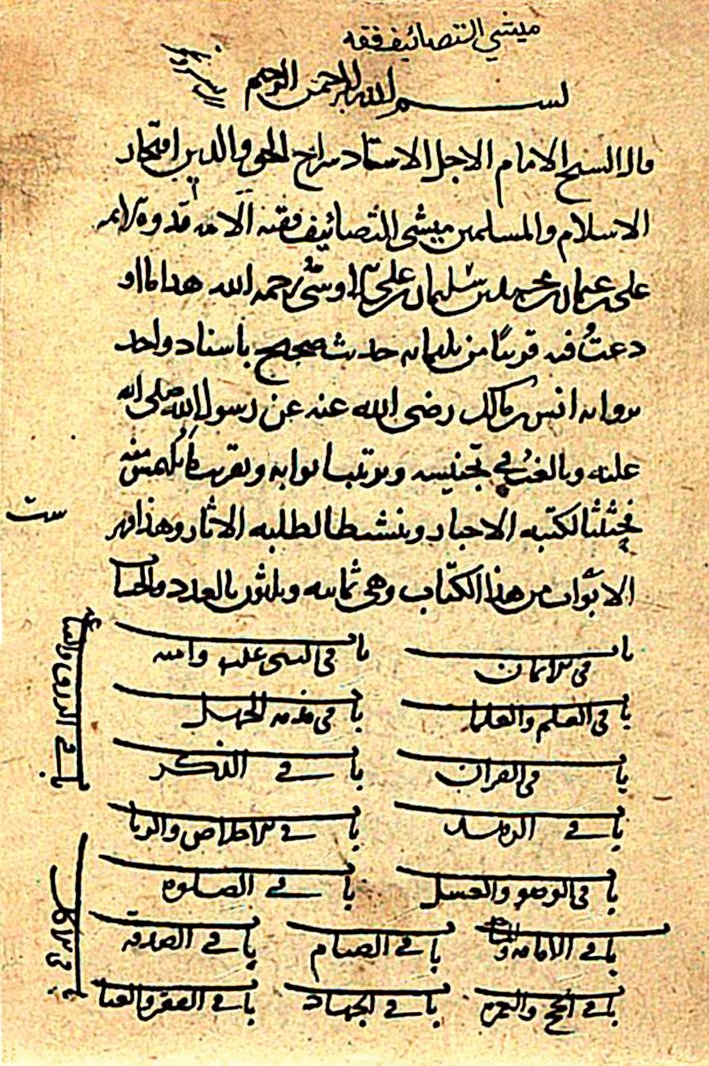 منشي التصانيف فقه
بسم الله الرحمن الرحيم
قال الشيخ الامام الاجل الاستاد سراج الحق والدين افتخار
الاسلام والمسلمين منشى التصانيف فقيه الامة قدوة الايمه
على بن عثمان بن محمد بن سليمان بن على الاوشى رحمه الله هذا ما او
دعت فيه قريبا من حديث صحيح باسناد واحد
برواية انس بن مالك رضى الله عنه عن رسول الله صلى الله
عليه وبالغت في تجنيسه وترتيب ابوابه وتقريب
لكتبه الاخبار وتنشيطا لطلبه الاثار وهذا فهر
ست
الابواب من هذا الكتاب وهى ثمانيه وثلثون بالعدد والحساب
باب فى الايمان
باب فى النبى عليه وامته
باب فى العلم والعلما
باب فى مذمه الجهل
باب فى القران
باب فى الذكر
باب فى
باب فى الاخلاص والريا
باب فى الوضو والغسل
باب فى الصلوة
باب فى الامامه
باب فى الصيام
باب فى الصدقه
باب فى الحج والعمره
باب فى الجهاد
باب فى الفقر والغنا